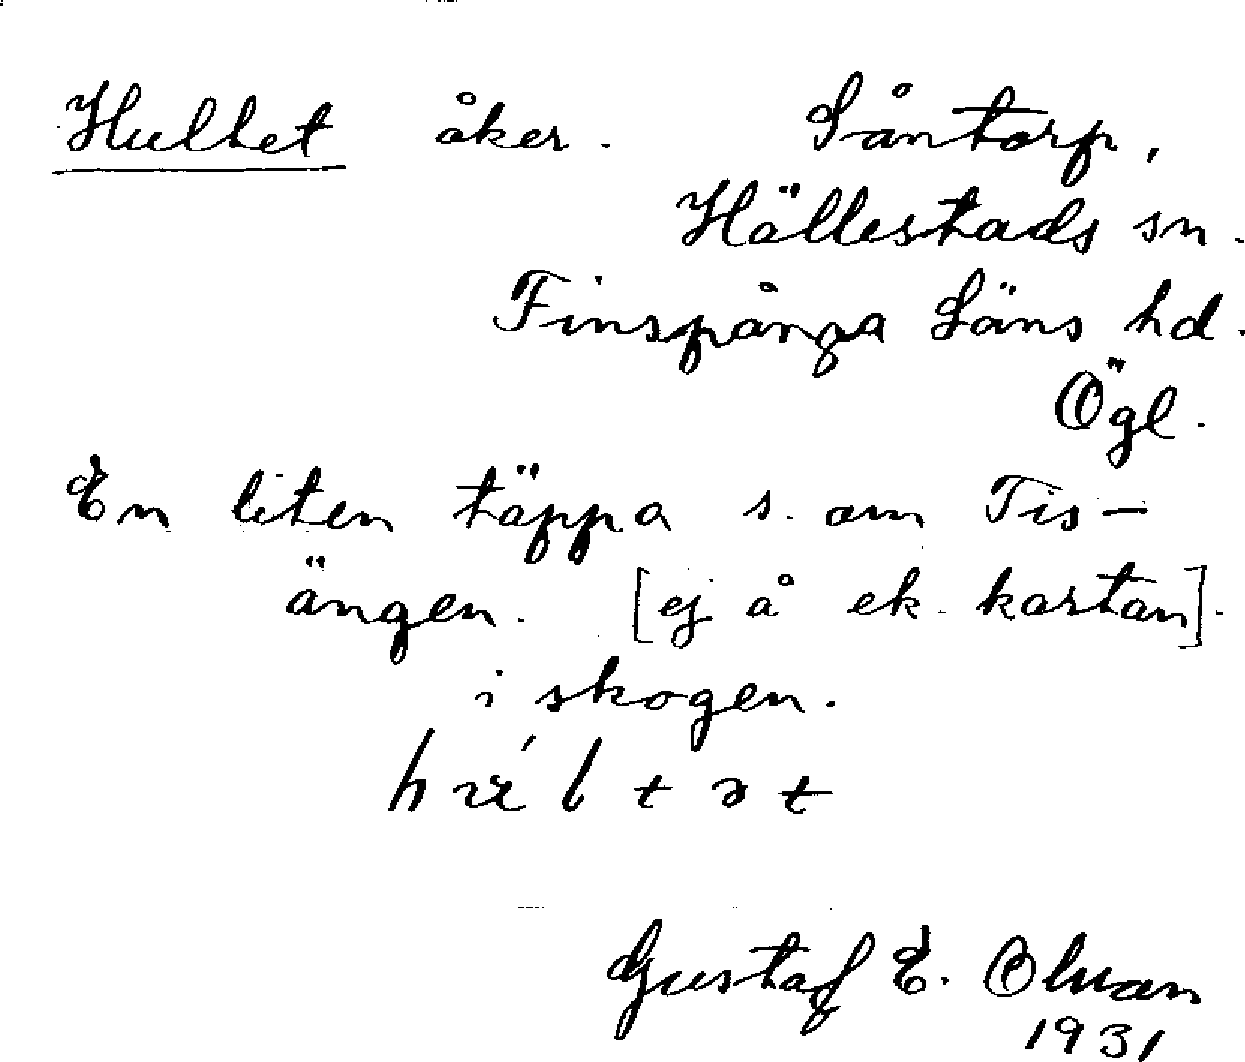 Hultet åker. Låntorp,
Hällestads sn.
Finspånga Läns hd.
Ögl.
En liten täppa s. om Tis-
ängen. [ej å ek. kartan].
i skogen.
Gustaf E.
1931